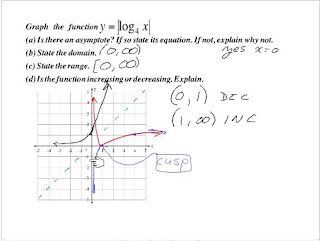 Graph the function y = |log₄ x|
(a) Is there an asymptote? If so state its equation. If not, explain why not.
yes x=0
(b) State the domain. (0, ∞)
(c) State the range. [0, ∞)
(d) Is the function increasing or decreasing. Explain.
(0, 1) DEC
(1, ∞) INC
CUSP